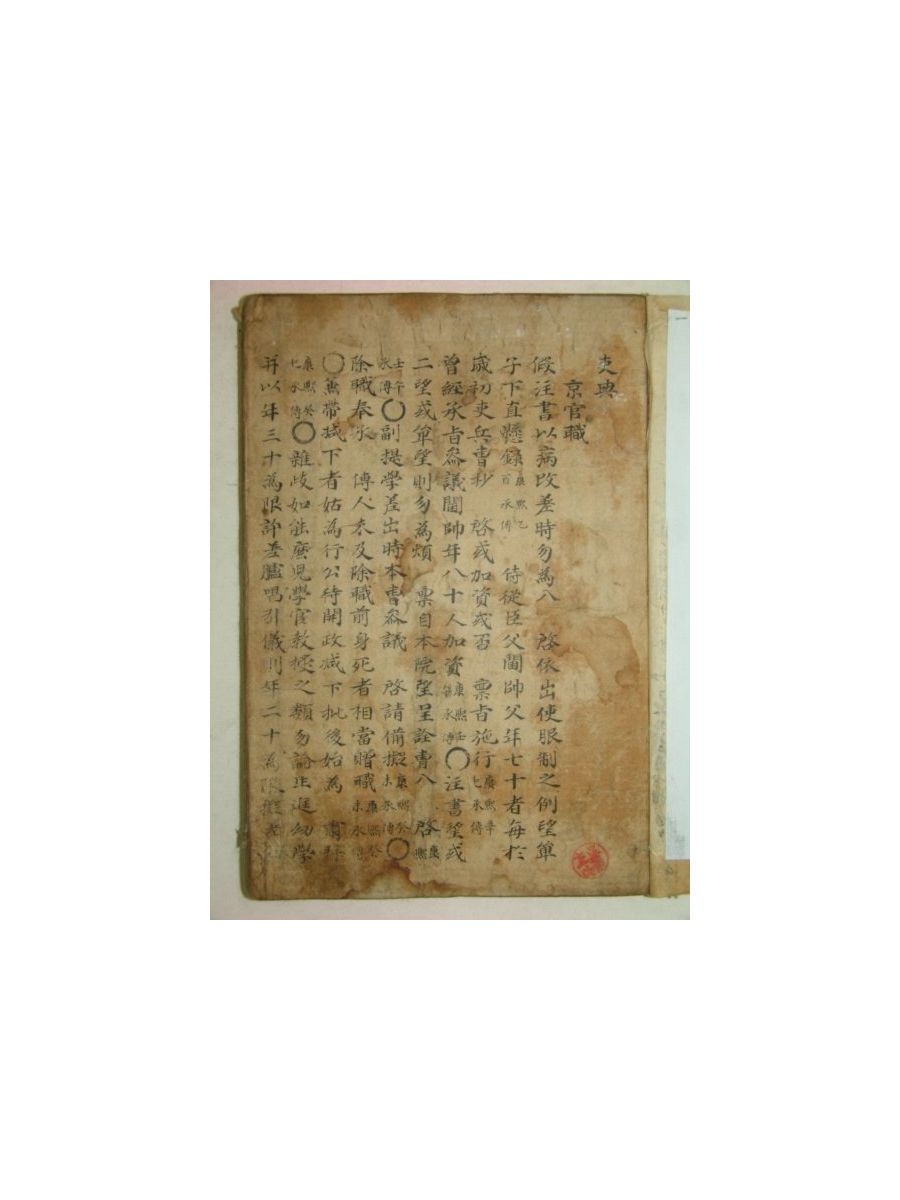 吏典
京官職
假注書以病改差時勿為入 啓依出使服制之例望單
子下直懸錄康熙乙酉承傳 侍從臣父閫帥父年七十者每於
歲初吏兵曹抄 啓或加資或否 稟旨施行康熙辛七承傳
曾經承旨參議閫帥年八十人加資康熙壬承傳〇注書望或
二望或單望則勿為煩 稟自本院望呈詮曹入 啓康熙
壬午承傳〇副提學差出時本曹參議 啓請備擬康熙癸未承傳〇
除職奉承 傳人未及除職前身死者相當贈職康熙癸未承傳
〇兼帶減下者姑為行公待開政減下批後始為
康熙癸七承傳〇雜歧如能麽兒學官教授之類勿論生進幼學
并以年三十為限許差臚唱引儀則年二十為限